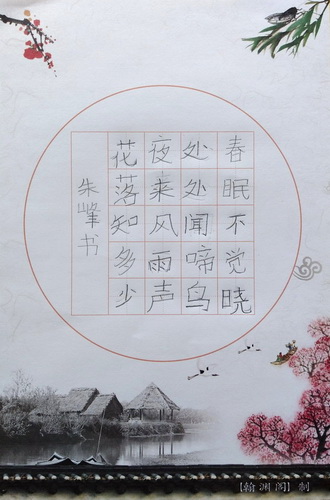 春眠不觉晓
处处闻啼鸟
夜来风雨声
花落知多少
朱峰书
【翰渊阁】制